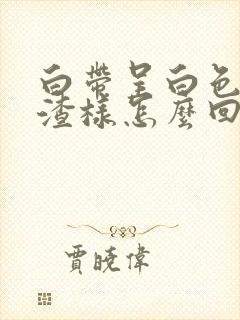 白帶呈白色
渣樣怎麼回
賈曉偉